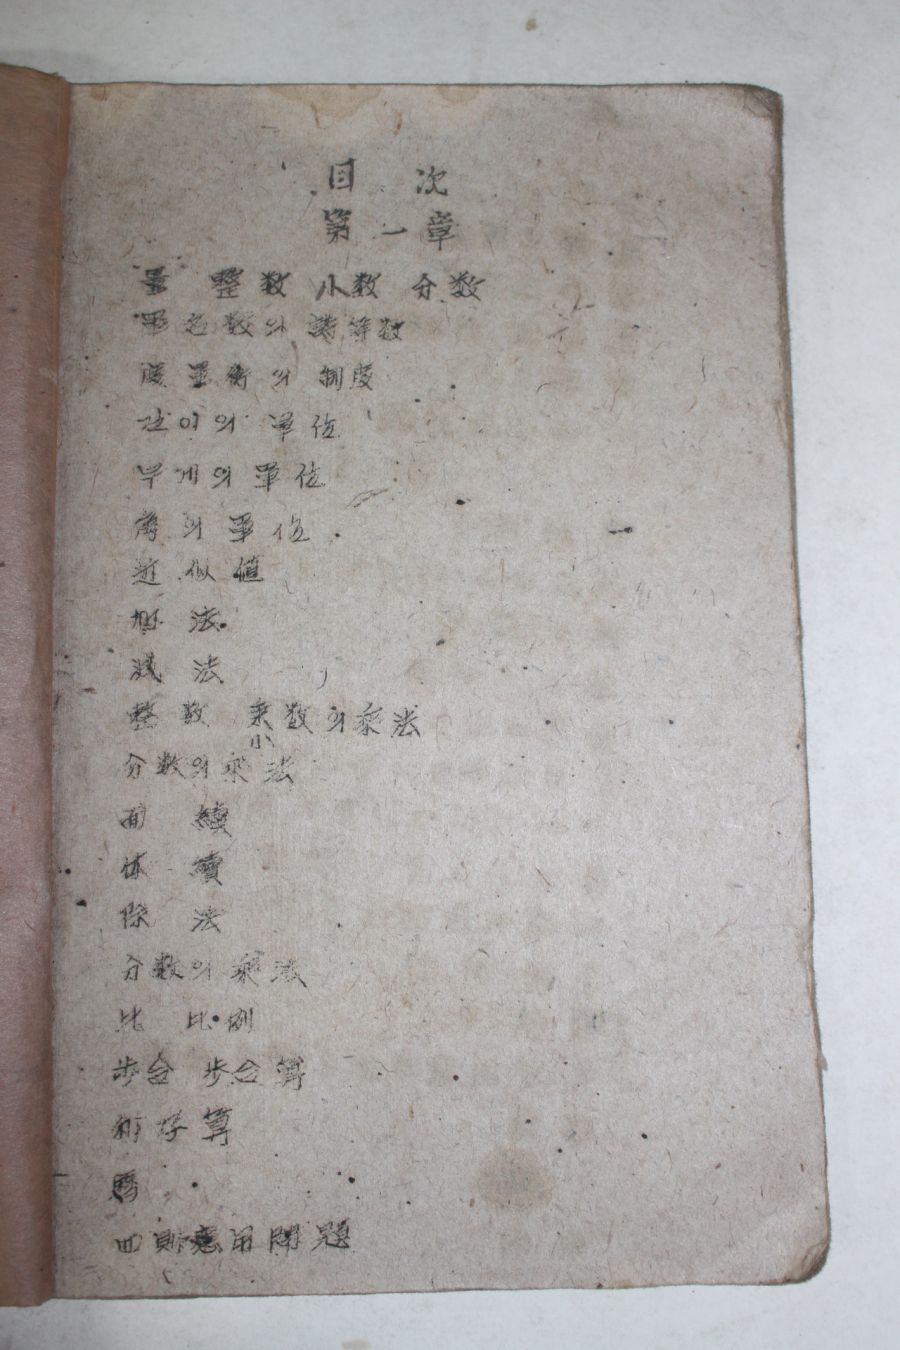 目 次
第一章
量 整数 小数 分数
單名数와 諸等数
度量衡의 制度
길이의 單位
무게의 單位
角의 單位
近似値
加 法
減 法
整数 乘数의 乘法
小
分数의 乘法
面 積
体 積
除 法
分数의 乘法
比 比例
步合 步合算
利子算
曆
四則應用問題